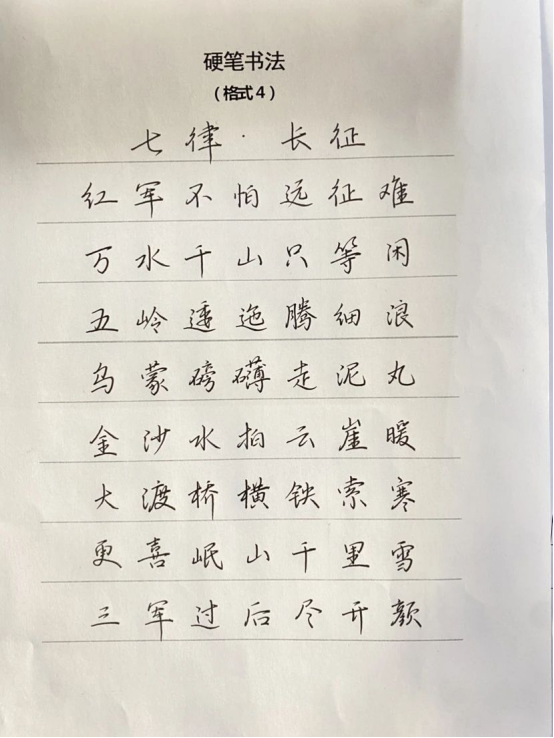 硬笔书法
（格式4）
七律·长征
红军不怕远征难
万水千山只等闲
五岭逶迤腾细浪
乌蒙磅礴走泥丸
金沙水拍云崖暖
大渡桥横铁索寒
更喜岷山千里雪
三军过后尽开颜